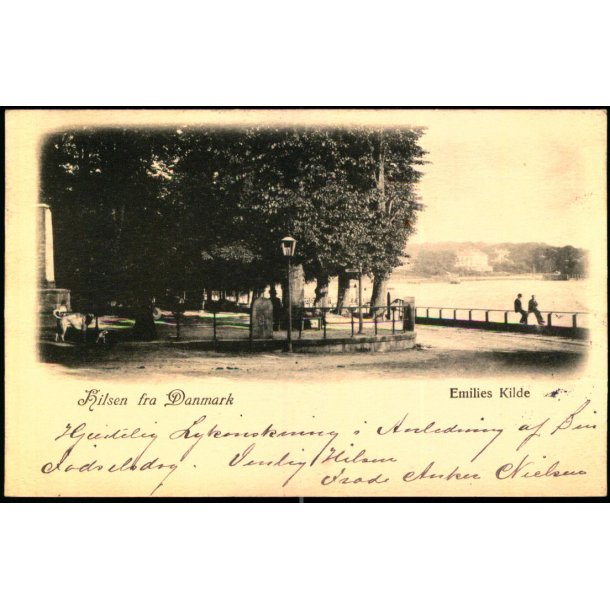 Hilsen fra Danmark
Emilies Kilde
Hjertelig Lykønskning i Anledning af Din
Fødselsdag. Venlig Hilsen
Frode Anker Nielsen